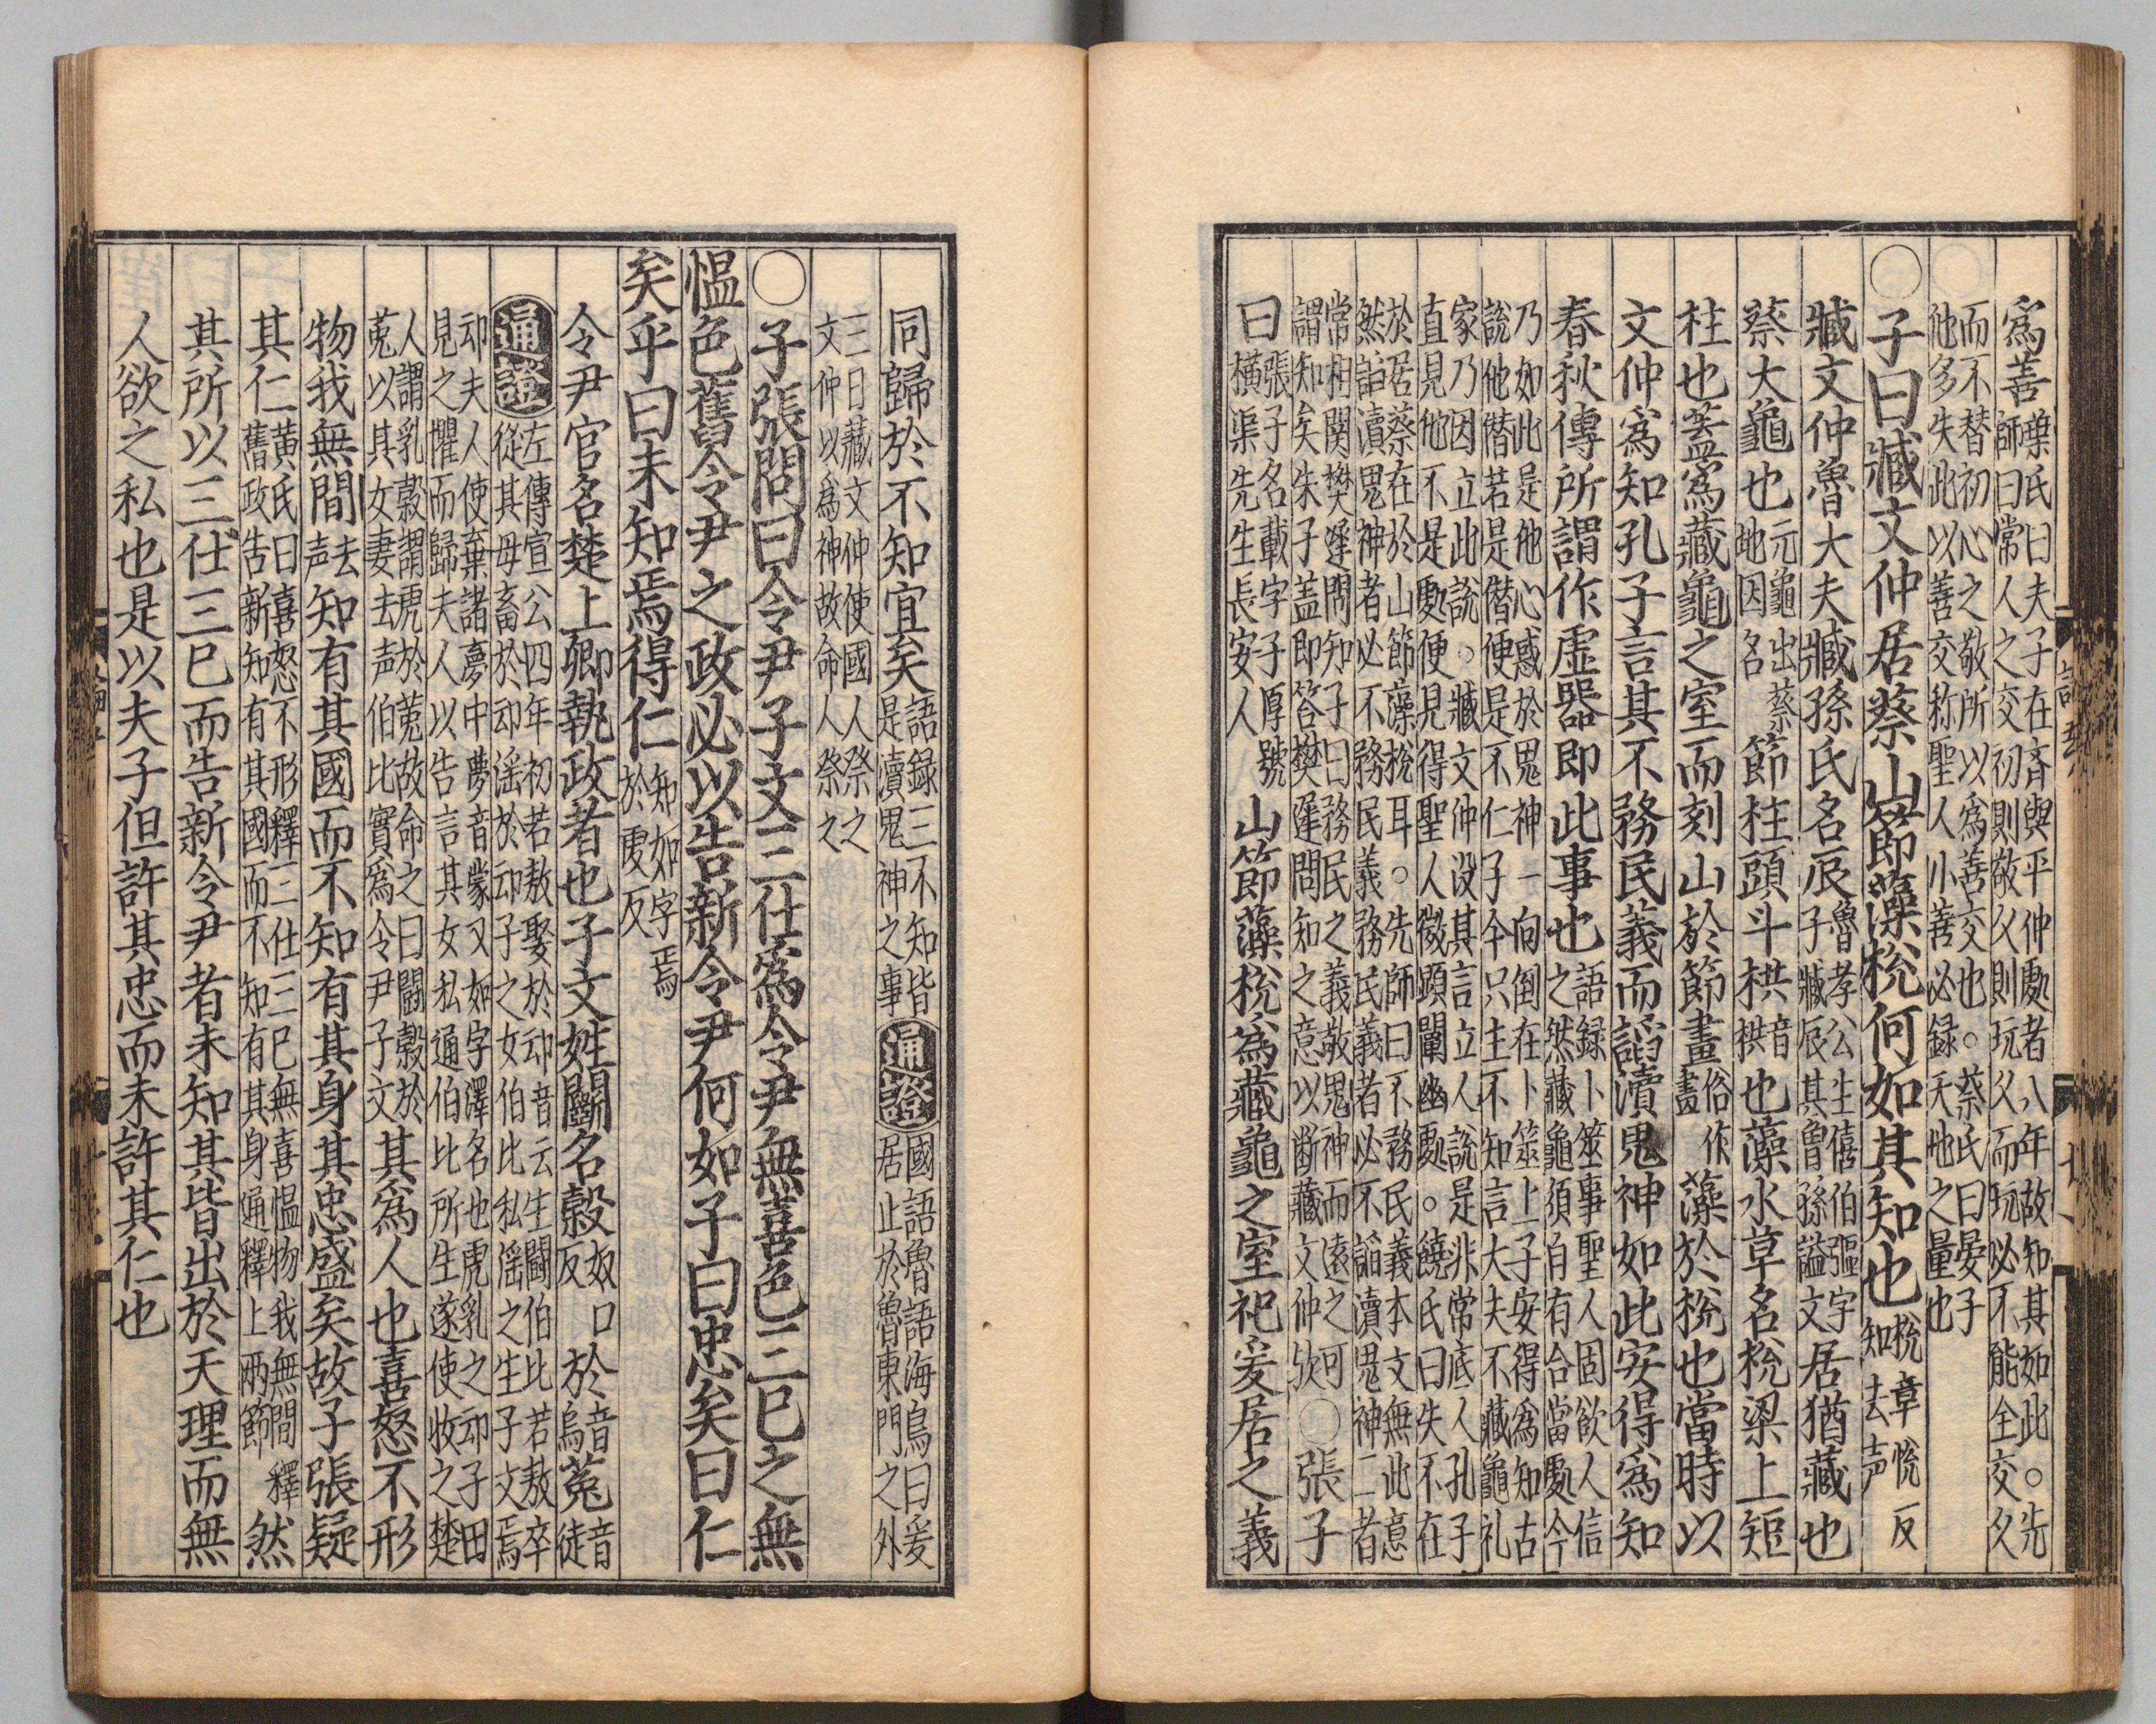 爲善葉氏曰夫子在齊與平仲處者八年故知其如此○先
師曰常人之交初則敬久則玩久而玩必不能全交久
而不替初心之敬所以爲善交也○蔡氏曰晏子
他多失此以善交称聖人小善必録天地之量也
○子曰臧文仲居蔡山節藻梲何如其知也梲章悅反
知去声
臧文仲魯大夫臧孫氏名辰魯孝公生僖伯彄字
子臧辰其曽孫謚文居猶藏也
蔡大龜也元龜出蔡
地因名節柱頭斗栱音
拱也藻水草名梲梁上矩
柱也蓋爲藏龜之室而刻山於節畫俗作
畵藻於梲也當時以
文仲爲知孔子言其不務民義而諂瀆鬼神如此安得爲知
春秋傳所謂作虚器即此事也語録卜筮事聖人固欲人信
之然藏龜須自有合當處今
乃如此是他心惑於鬼神一向倒在卜筮上子安得爲知古
說他僭若是僭便是不仁子今只主不知言大夫不藏龜礼
家乃因立此說○臧文仲没其言立人說是非常底人孔子
直見他不是處便見得聖人微顯闡幽處○饒氏曰失不在
於居蔡在於山節藻梲耳○先師曰不務民義本文無此意
然諂瀆鬼神者必不務民義務民義者必不諂瀆鬼神二者
常相関樊遲問知子曰務民之義敬鬼神而遠之可
謂知矣朱子蓋即答樊遲問知之意以断臧文仲欤○張子
曰張子名載字子厚號
横渠先生長安人山節藻梲爲藏龜之室祀爰居之義
同歸於不知宜矣語録三不知皆
是瀆鬼神之事通證國語魯語海鳥曰爰
居止於魯東門之外
三日臧文仲使國人祭之
文仲以爲神故命人祭之
○子張問曰令尹子文三仕爲令尹無喜色三已之無
愠色舊令尹之政必以告新令尹何如子曰忠矣曰仁
矣乎曰未知焉得仁知如字焉
於虔反
令尹官名楚上卿執政者也子文姓鬬名穀奴口
反於音
烏菟音
徒
通證左傳宣公四年初若敖娶於䢵音云生鬭伯比若敖卒
從其母畜於䢵淫於䢵子之女伯比私淫之生子文焉
䢵夫人使棄諸夢中夢音蒙又如字澤名也虎乳之䢵子田
見之懼而歸夫人以告言其女私通伯比所生遂使收之楚
人謂乳穀謂虎於菟故命之曰鬭穀於
菟以其女妻去声伯比實爲令尹子文其爲人也喜怒不形
物我無間去
声知有其國而不知有其身其忠盛矣故子張疑
其仁黄氏曰喜怒不形釋三仕三已無喜愠物我無間釋
舊政告新知有其國而不知有其身通釋上两節然
其所以三仕三已而告新令尹者未知其皆出於天理而無
人欲之私也是以夫子但許其忠而未許其仁也